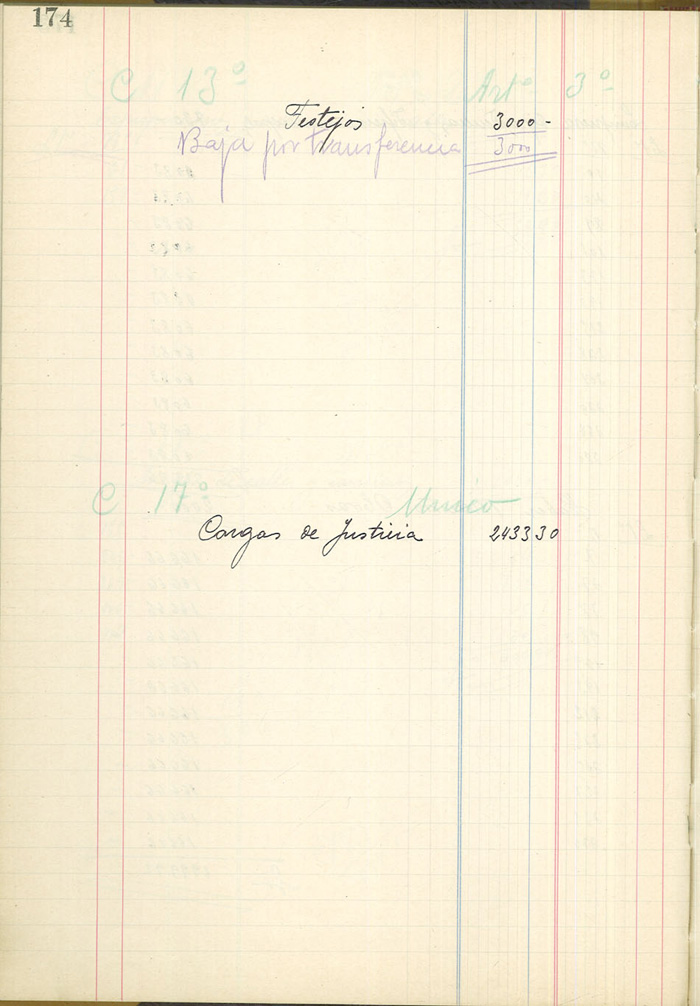 174
C 13º Artº 3º
Festejos 3000 -
Baja por transferencia 3000
C 17º Unico
Cargas de Justicia 2433 30